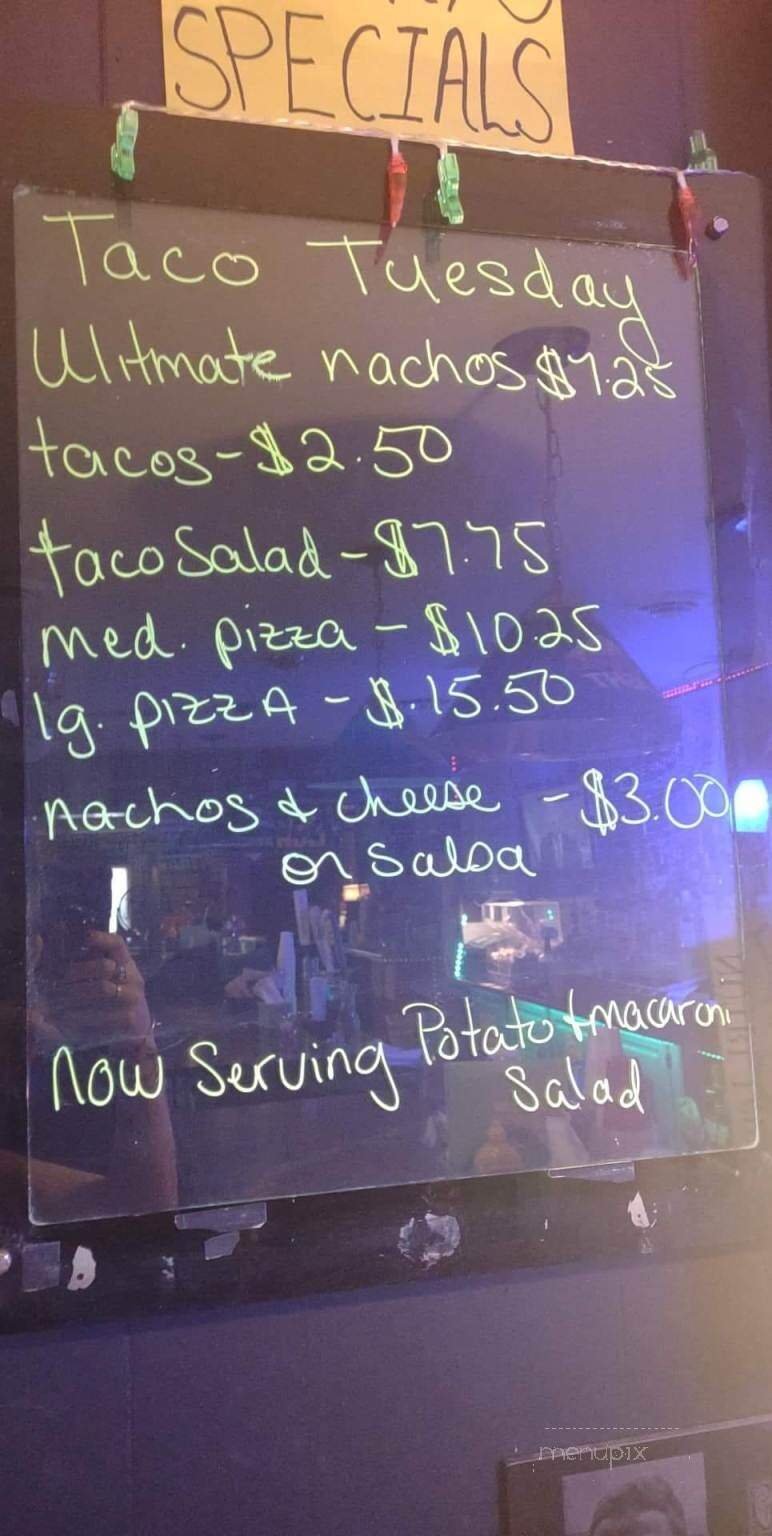 SPECIALS
Taco Tuesday
Ulitmate nachos $7.25
tacos - $2.50
taco Salad - $7.75
med. pizza - $10.25
lg. pizzA - $.15.50
nachos & cheese - $3.00
or salsa
Now Serving Potato + macaroni
Salad
menupix